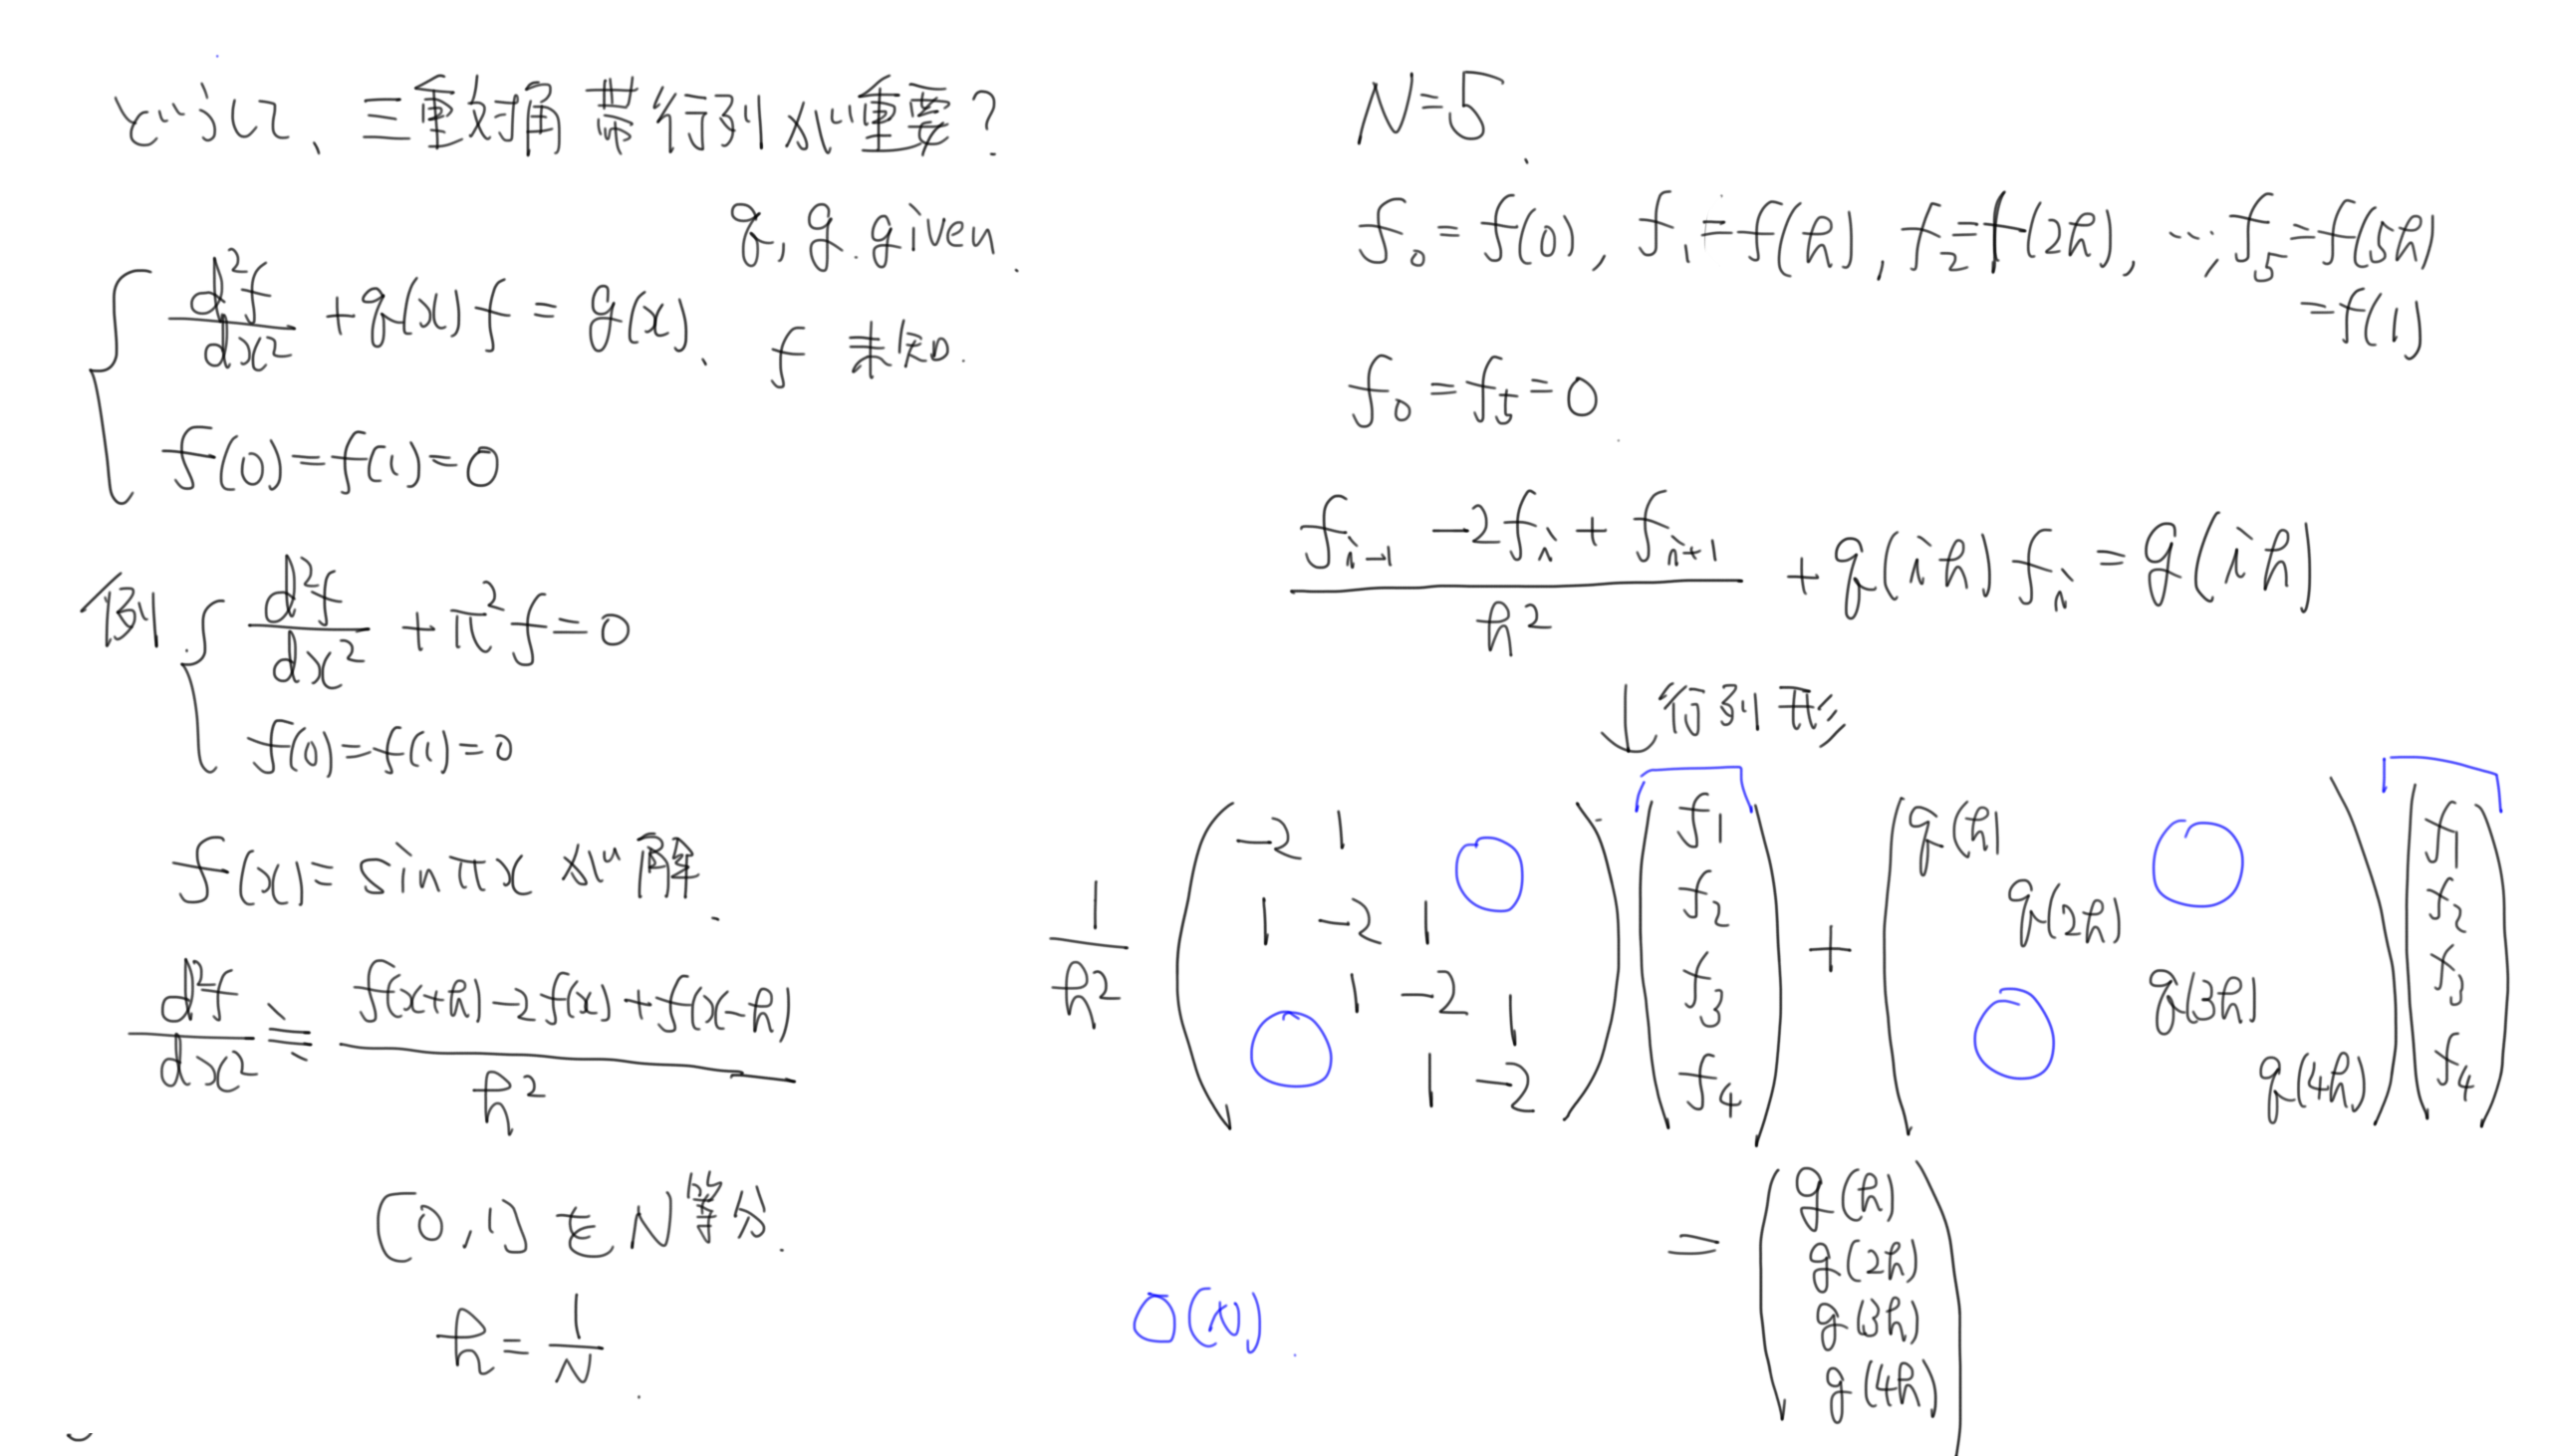 どうして、三重対角帯行列が重要?
q, g given.
d²f/dx² + q(x)f = g(x)、 f 未知.
f(0)=f(1)=0
例. d²f/dx² + π²f = 0
f(0)=f(1)=0
f(x)= sinπx が解.
d²f/dx² ≒ (f(x+h)-2f(x)+f(x-h))/h²
[0,1]をN等分.
h = 1/N.
N=5.
f₀=f(0), f₁=f(h), f₂=f(2h), …, f₅=f(5h)
=f(1)
f₀=f₅=0
(fᵢ₋₁ -2fᵢ + fᵢ₊₁)/h² + q(ih)fᵢ = g(ih)
↓行列形
1/h² ( -2 1 0 ) ( f₁ ) + ( q(h) 0 ) ( f₁ )
( 1 -2 1 ) ( f₂ ) ( q(2h) ) ( f₂ )
( 1 -2 1 ) ( f₃ ) ( q(3h) ) ( f₃ )
( 0 1 -2 ) ( f₄ ) ( 0 q(4h) ) ( f₄ )
= ( g(h) )
( g(2h) )
( g(3h) )
( g(4h) )
O(N).